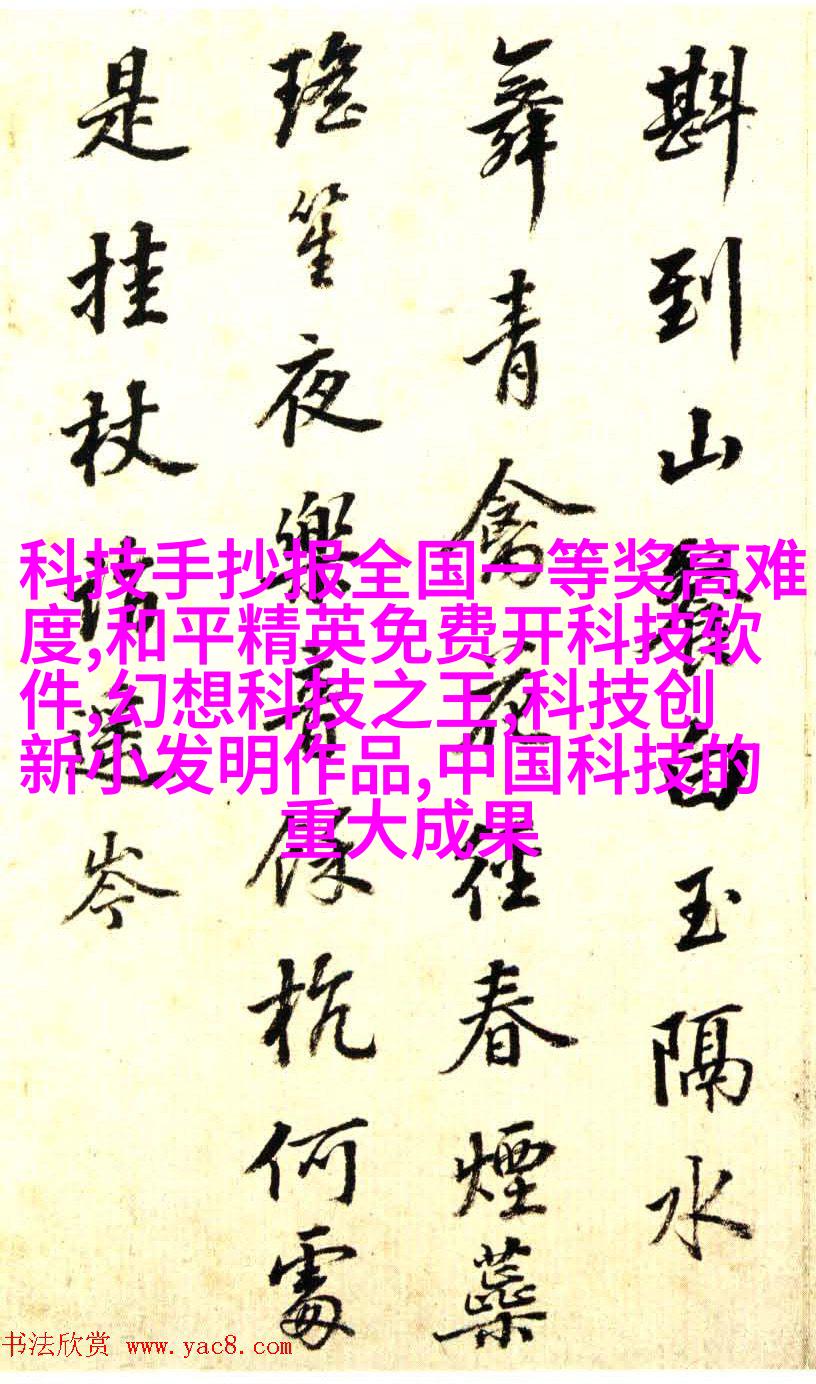 斟到山玉隔水
舞青禽花徑春煙蘂
瑤笙夜樂餘杭何處
是挂杖遥岑
科技手抄报全国一等奖高难
度,和平精英免费开科技软
件,幻想科技之王,科技创
新小发明作品,中国科技的
重大成果
书法欣赏 www.yac8.com